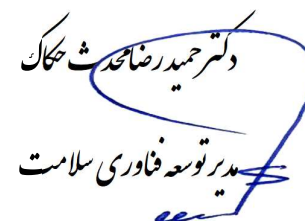 دکتر حمید رضا محدث حکاک
مدیر توسعه فناوری سلامت